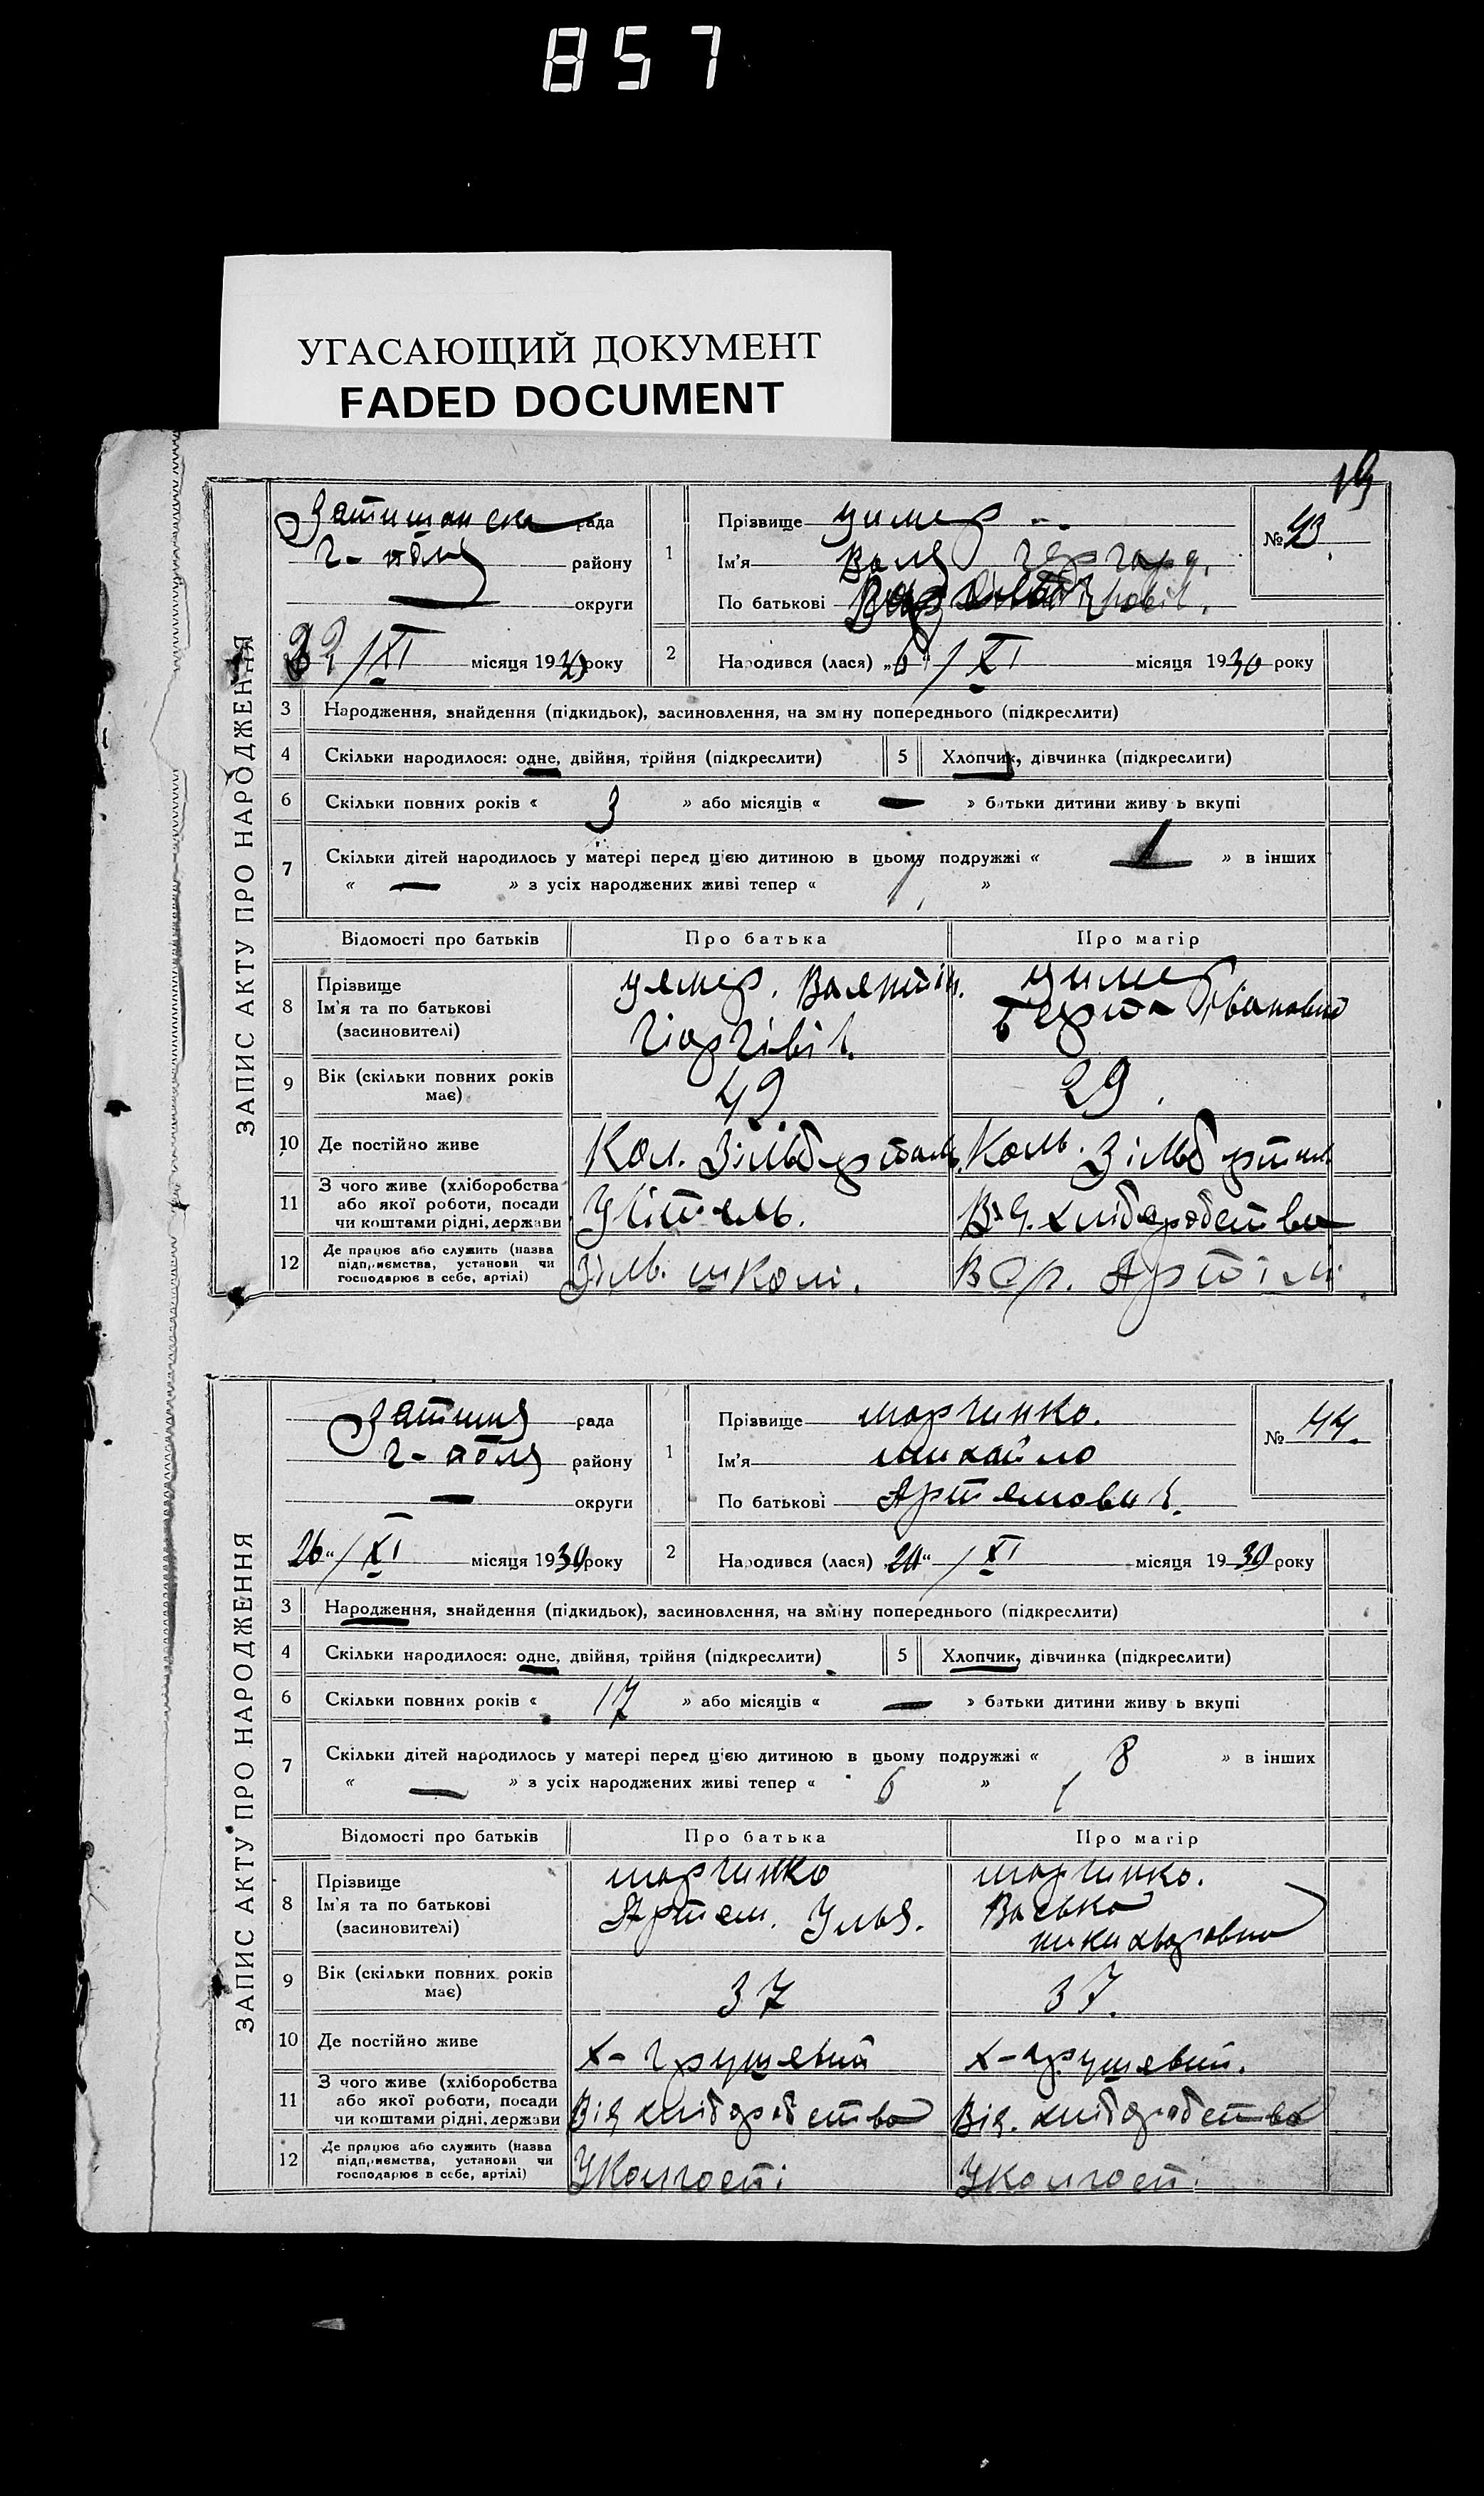 857
УГАСАЮЩИЙ ДОКУМЕНТ
FADED DOCUMENT
19
ЗАПИС АКТУ ПРО НАРОДЖЕННЯ
Затишанска рада
Г-поля району
— округи
/XI місяця 1930 року
1
Прізвище Цимер
Ім'я Валя Гергард.
По батькові
№ 43.
2 Народився (лася) „6“ /XI місяця 1930 року
3 Народження, знайдення (підкидьок), засиновлення, на зміну попереднього (підкреслити)
4 Скільки народилося: одне, двійня, трійня (підкреслити) 5 Хлопчик, дівчинка (підкреслити)
6 Скільки повних років « 3 » або місяців « — » батьки дитини живуть вкупі
7 Скільки дітей народилось у матері перед цією дитиною в цьому подружжі « 1 » в інших
« — » з усіх народжених живі тепер « 1 »
Відомості про батьків Про батька Про матір
8 Прізвище
Ім'я та по батькові
(засновителі)
Цимер. Валентін.
Гіоргівіч.
Цимер
Берта Івановна
9 Вік (скільки повних років має) 42 29.
10 Де постійно живе Кол. Зільберталь. Коль. Зільберталь
11 З чого живе (хліборобства або якої роботи, посади чи коштами рідні, держави Учітель. Від. хліборобства
12 Де працює або служить (назва підприємства, установи чи господарює в себе, артілі) Зіль. школі. Артілі
ЗАПИС АКТУ ПРО НАРОДЖЕННЯ
Затишя рада
Г-поля району
— округи
26“ /XI місяця 1930 року
1
Прізвище Марченко.
Ім'я Михайло
По батькові Артемович.
№ 44.
2 Народився (лася) /XI місяця 1930 року
3 Народження, знайдення (підкидьок), засиновлення, на зміну попереднього (підкреслити)
4 Скільки народилося: одне, двійня, трійня (підкреслити) 5 Хлопчик, дівчинка (підкреслити)
6 Скільки повних років « 17 » або місяців « — » батьки дитини живуть вкупі
7 Скільки дітей народилось у матері перед цією дитиною в цьому подружжі « 8 » в інших
« — » з усіх народжених живі тепер « 6 »
Відомості про батьків Про батька Про матір
8 Прізвище
Ім'я та по батькові
(засновителі)
Марчинко
Артем. Улья.
Марчинко.
Васька
Никихворовна
9 Вік (скільки повних років має) 37 37.
10 Де постійно живе Х-Грушевий Х-Грушевий.
11 З чого живе (хліборобства або якої роботи, посади чи коштами рідні, держави Від хліборобства Від. хліборобства
12 Де працює або служить (назва підприємства, установи чи господарює в себе, артілі) У колгоспі У колгоспі